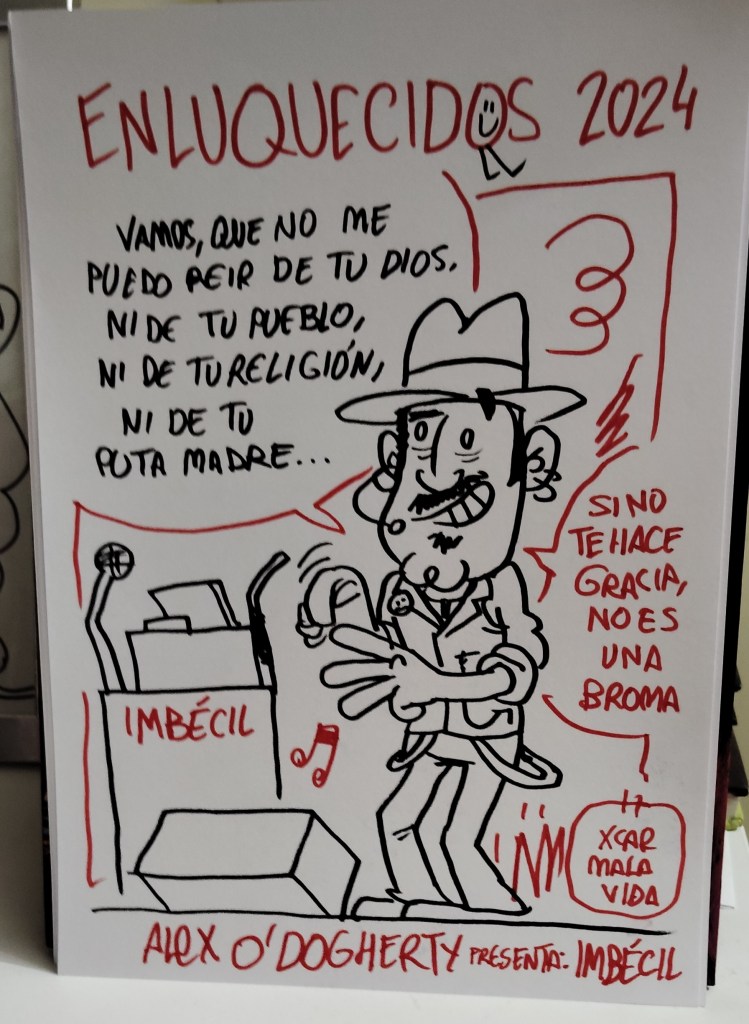 ENLUQUECIDOS 2024
VAMOS, QUE NO ME
PUEDO REIR DE TU DIOS.
NI DE TU PUEBLO,
NI DE TU RELIGIÓN,
NI DE TU
PUTA MADRE...
SI NO
TE HACE
GRACIA,
NO ES
UNA
BROMA
IMBÉCIL
XCAR
MALA
VIDA
ALEX O'DOGHERTY PRESENTA: IMBÉCIL